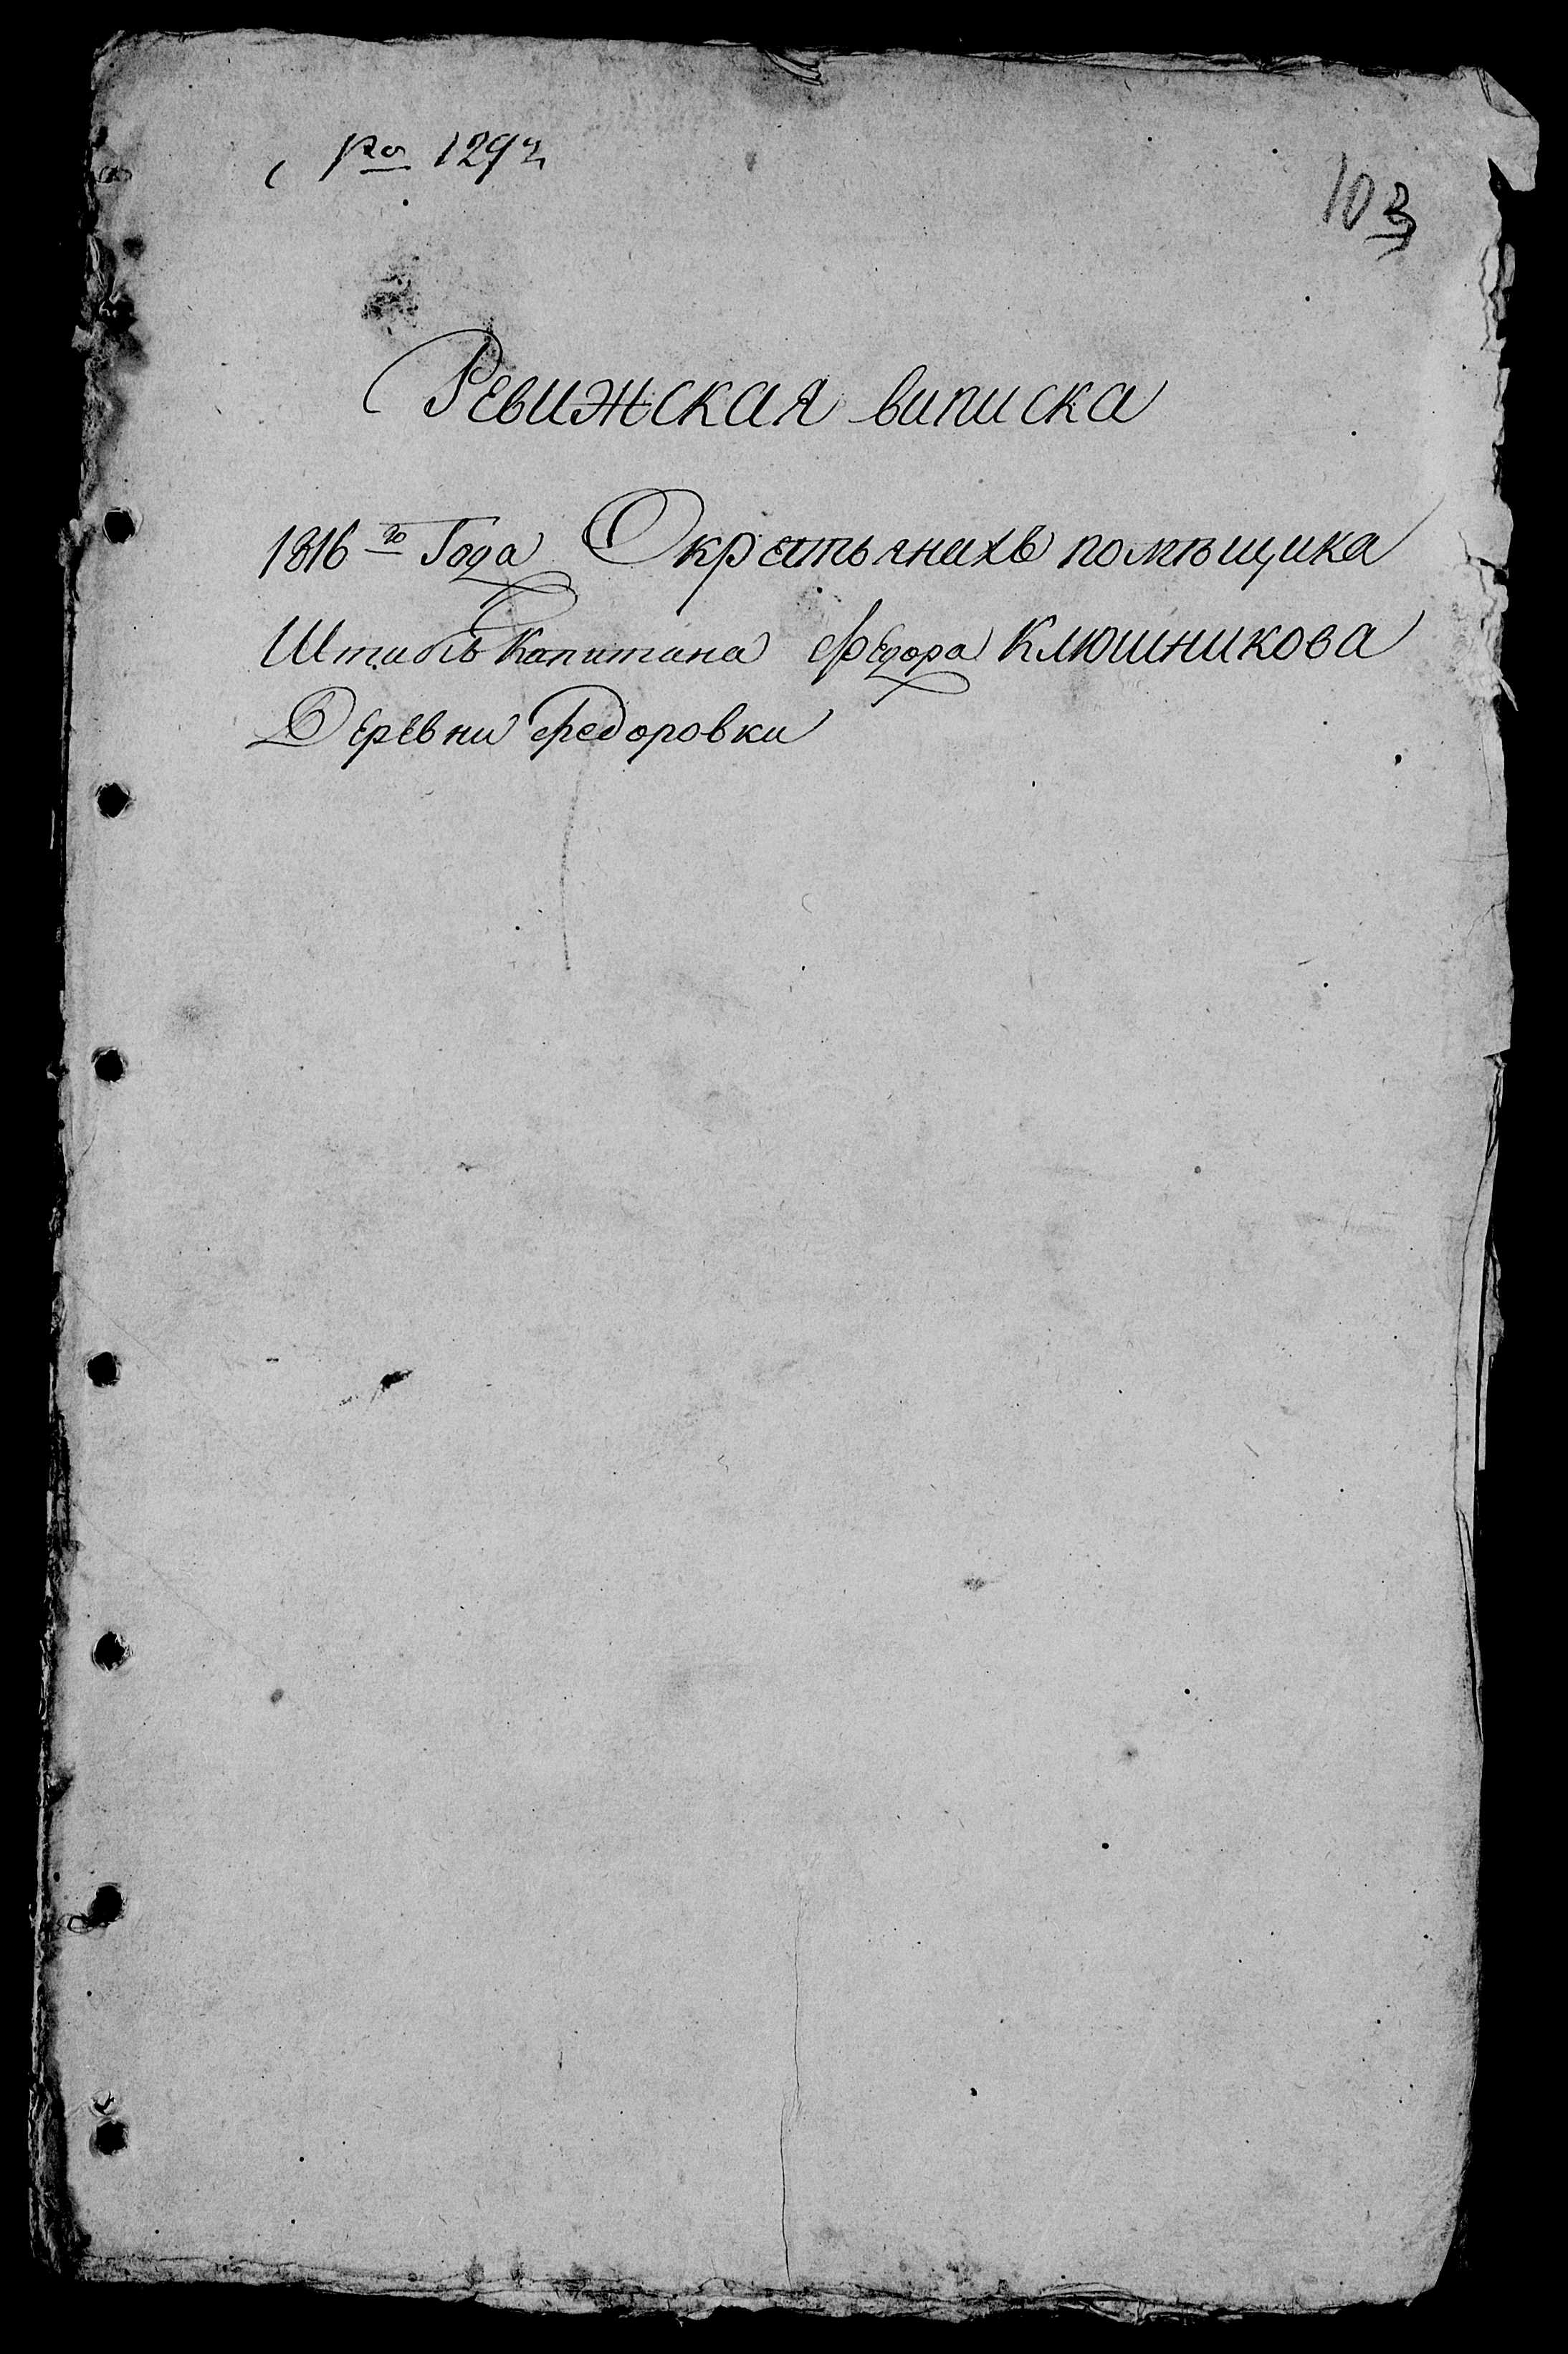 1292
103
Ревижская виписка
1816го Года О крестьянихъ помѣщика
Штабсъ Капитана Федора Клюшникова
Деревни Федоровки